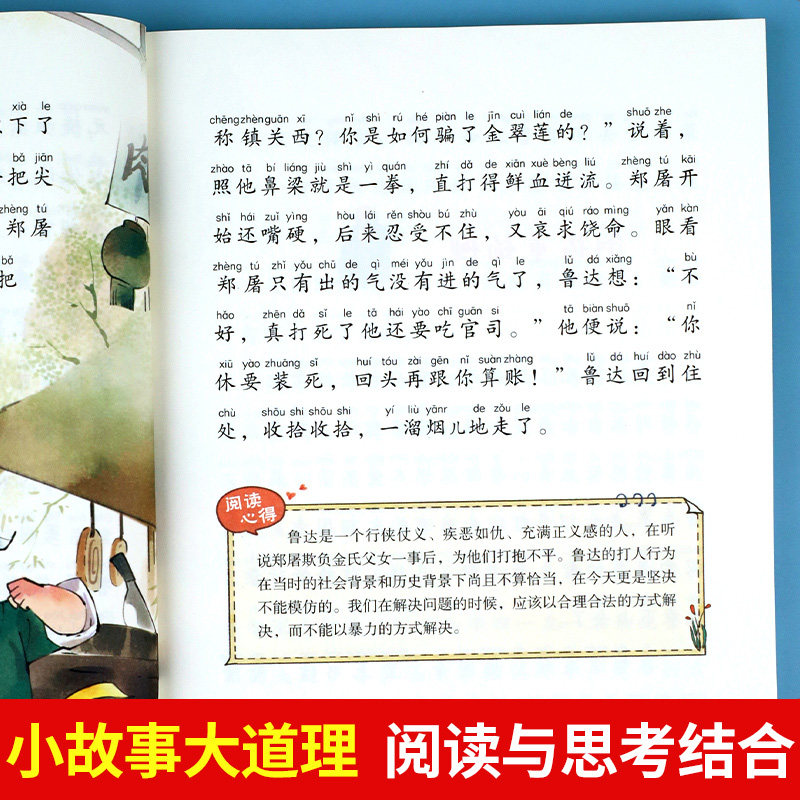 xià le
下了
bǎ jiān
把尖
zhèng tú
郑屠
bǎ
把
chēng zhèn guān xī nǐ shì rú hé piàn le jīn cuì lián de shuō zhe
称镇关西？你是如何骗了金翠莲的？”说着，
zhào tā bí liáng jiù shì yì quán zhí dǎ de xiān xuè bèng liú zhèng tú kāi
照他鼻梁就是一拳，直打得鲜血迸流。郑屠开
shǐ hái zuǐ yìng hòu lái rěn shòu bú zhù yòu āi qiú ráo mìng yǎn kàn
始还嘴硬，后来忍受不住，又哀求饶命。眼看
zhèng tú zhǐ yǒu chū de qì méi yǒu jìn de qì le lǔ dá xiǎng bù
郑屠只有出的气没有进的气了，鲁达想：“不
hǎo zhēn dǎ sǐ le tā hái yào chī guān si tā biàn shuō nǐ
好，真打死了他还要吃官司。”他便说：“你
xiū yào zhuāng sǐ huí tóu zài gēn nǐ suàn zhàng lǔ dá huí dào zhù
休要装死，回头再跟你算账！”鲁达回到住
chù shōu shi shōu shi yí liù yānr de zǒu le
处，收拾收拾，一溜烟儿地走了。
阅读
心得
鲁达是一个行侠仗义、疾恶如仇、充满正义感的人，在听
说郑屠欺负金氏父女一事后，为他们打抱不平。鲁达的打人行为
在当时的社会背景和历史背景下尚且不算恰当，在今天更是坚决
不能模仿的。我们在解决问题的时候，应该以合理合法的方式解
决，而不能以暴力的方式解决。
小故事大道理 阅读与思考结合